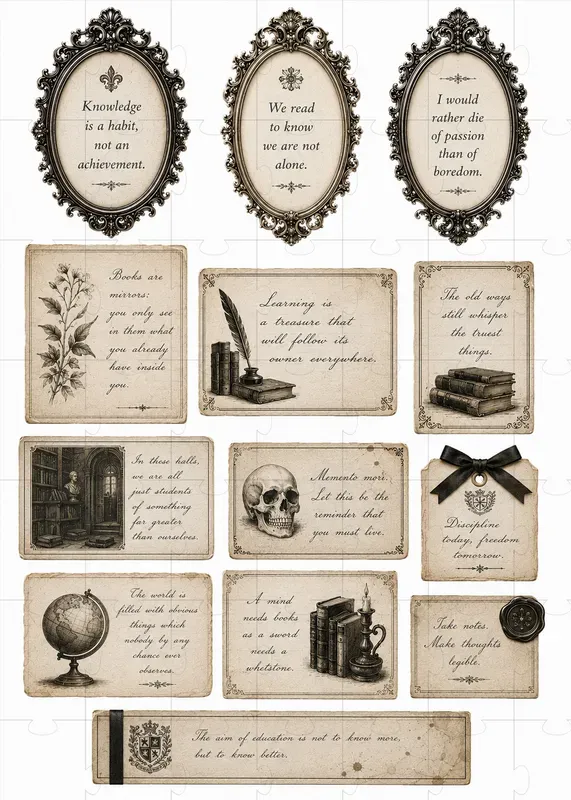 Knowledge
is a habit,
not an
achievement.
We read
to know
we are not
alone.
I would
rather die
of passion
than of
boredom.
Books are
mirrors:
you only see
in them what
you already
have inside
you.
Learning is
a treasure that
will follow its
owner everywhere.
The old ways
still whisper
the truest
things.
In these halls,
we are all
just students
of something
far greater
than ourselves.
Memento mori.
Let this be the
reminder that
you must live.
Discipline
today, freedom
tomorrow.
The world is
filled with obvious
things which
nobody by any
chance ever
observes.
A mind
needs books
as a sword
needs a
whetstone.
Take notes.
Make thoughts
legible.
The aim of education is not to know more,
but to know better.